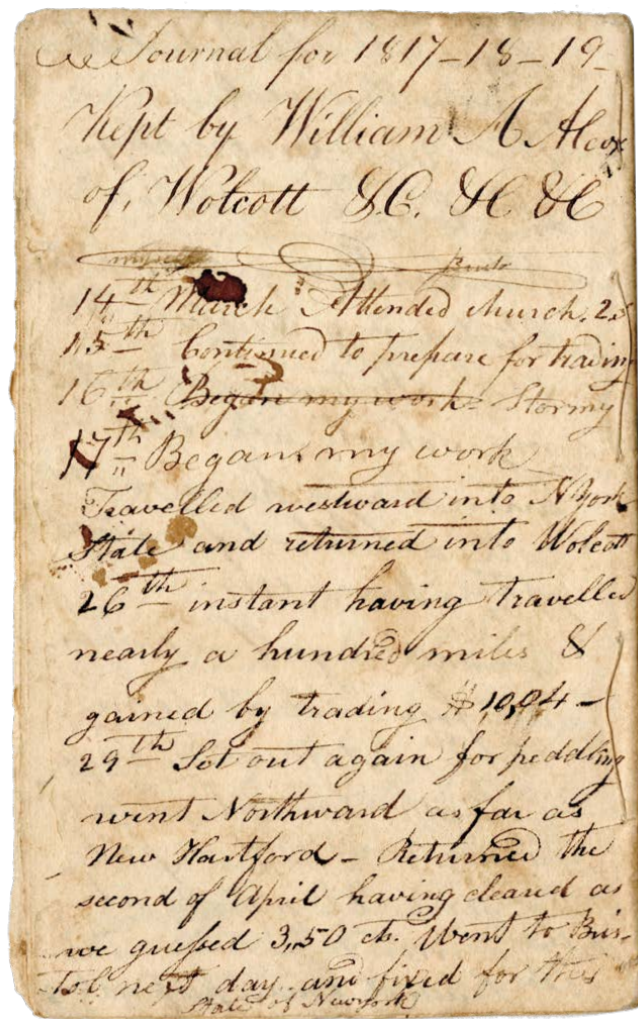 Journal for 1817-18-19-
Kept by William A Alcox
of, Wolcott &C. &C &C
myself
14th March Attended church.
15th Continued to prepare for trading
16th " Began my work - Stormy
17th " Began my work
Travelled westward into N York
State and returned into Wolcott
26th instant having travelled
nearly a hundred miles &
gained by trading $10,04 -
29th Set out again for peddling
went Northward as far as
New Hartford - Returned the
second of April having cleared as
we guessed 3,50 cts. Went to Bris-
tol next day and fixed for the
State of Newyork